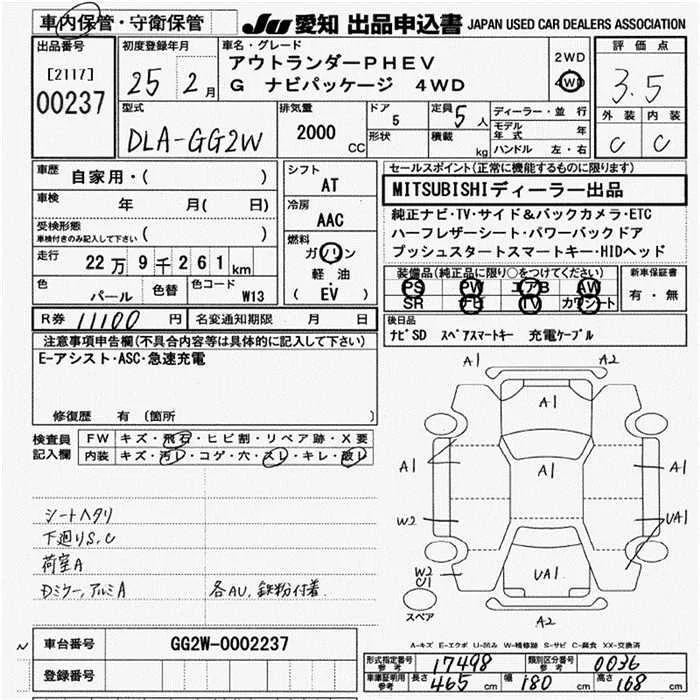 車内保管・守衛保管 JU 愛知 出品申込書 JAPAN USED CAR DEALERS ASSOCIATION
出品番号
[2117]
00237
初度登録年月
25 2月
車名・グレード
アウトランダーPHEV
G ナビパッケージ 4WD
2WD
4WD
評価点
3.5
外装 内装
C C
型式
DLA-GG2W
排気量
2000
CC
ドア
5
形状
定員
5人
積載
kg
ディーラー・並行
モデル年式 年式
ハンドル 左・右
車歴
自家用・( )
車検 年 月( 日)
受検形態
車検付きのみ記入して下さい ( )
走行
22万9千261km
色
パール
色替
色コード
W13
シフト
AT
冷房
AAC
燃料
ガソリン
軽油
( EV )
セールスポイント(正常に機能するものに限ります)
MITSUBISHIディーラー出品
純正ナビ・TV・サイド&バックカメラ・ETC
ハーフレザーシート・パワーバックドア
プッシュスタートスマートキー・HIDヘッド
装備品(純正品に限り○をつけてください)
PS PW エアB AW
SR ナビ TV カワシート
新車保証書
有・無
R券 11100 円 名変通知期限 月 日
後日品
ナビSD スペアスマートキー 充電ケーブル
注意事項申告欄(不具合内容等は具体的に記入して下さい)
E-アシスト・ASC・急速充電
修復歴 有 〔箇所 〕
検査員
記入欄
FW キズ・飛石・ヒビ割・リペア跡・X要
内装 キズ・汚レ・コゲ・穴・スレ・キレ・破レ
シートヘタリ
下廻りS,C
荷室A
Dミラー,アルミA 各AU,鉄粉付着
A1 A2
A1
A1 A1 A1
W2 UA1
W2
U1
UA1
スペア
A2
A-キズ E-エクボ U-凹み W-補修跡 S-サビ C-腐食 XX-交換済
車台番号 GG2W-0002237
登録番号
形式指定番号 参考 17498 類別区分番号 参考 0036
車庫証明用 参考 長さ 465 cm 幅 180 cm 高さ 168 cm